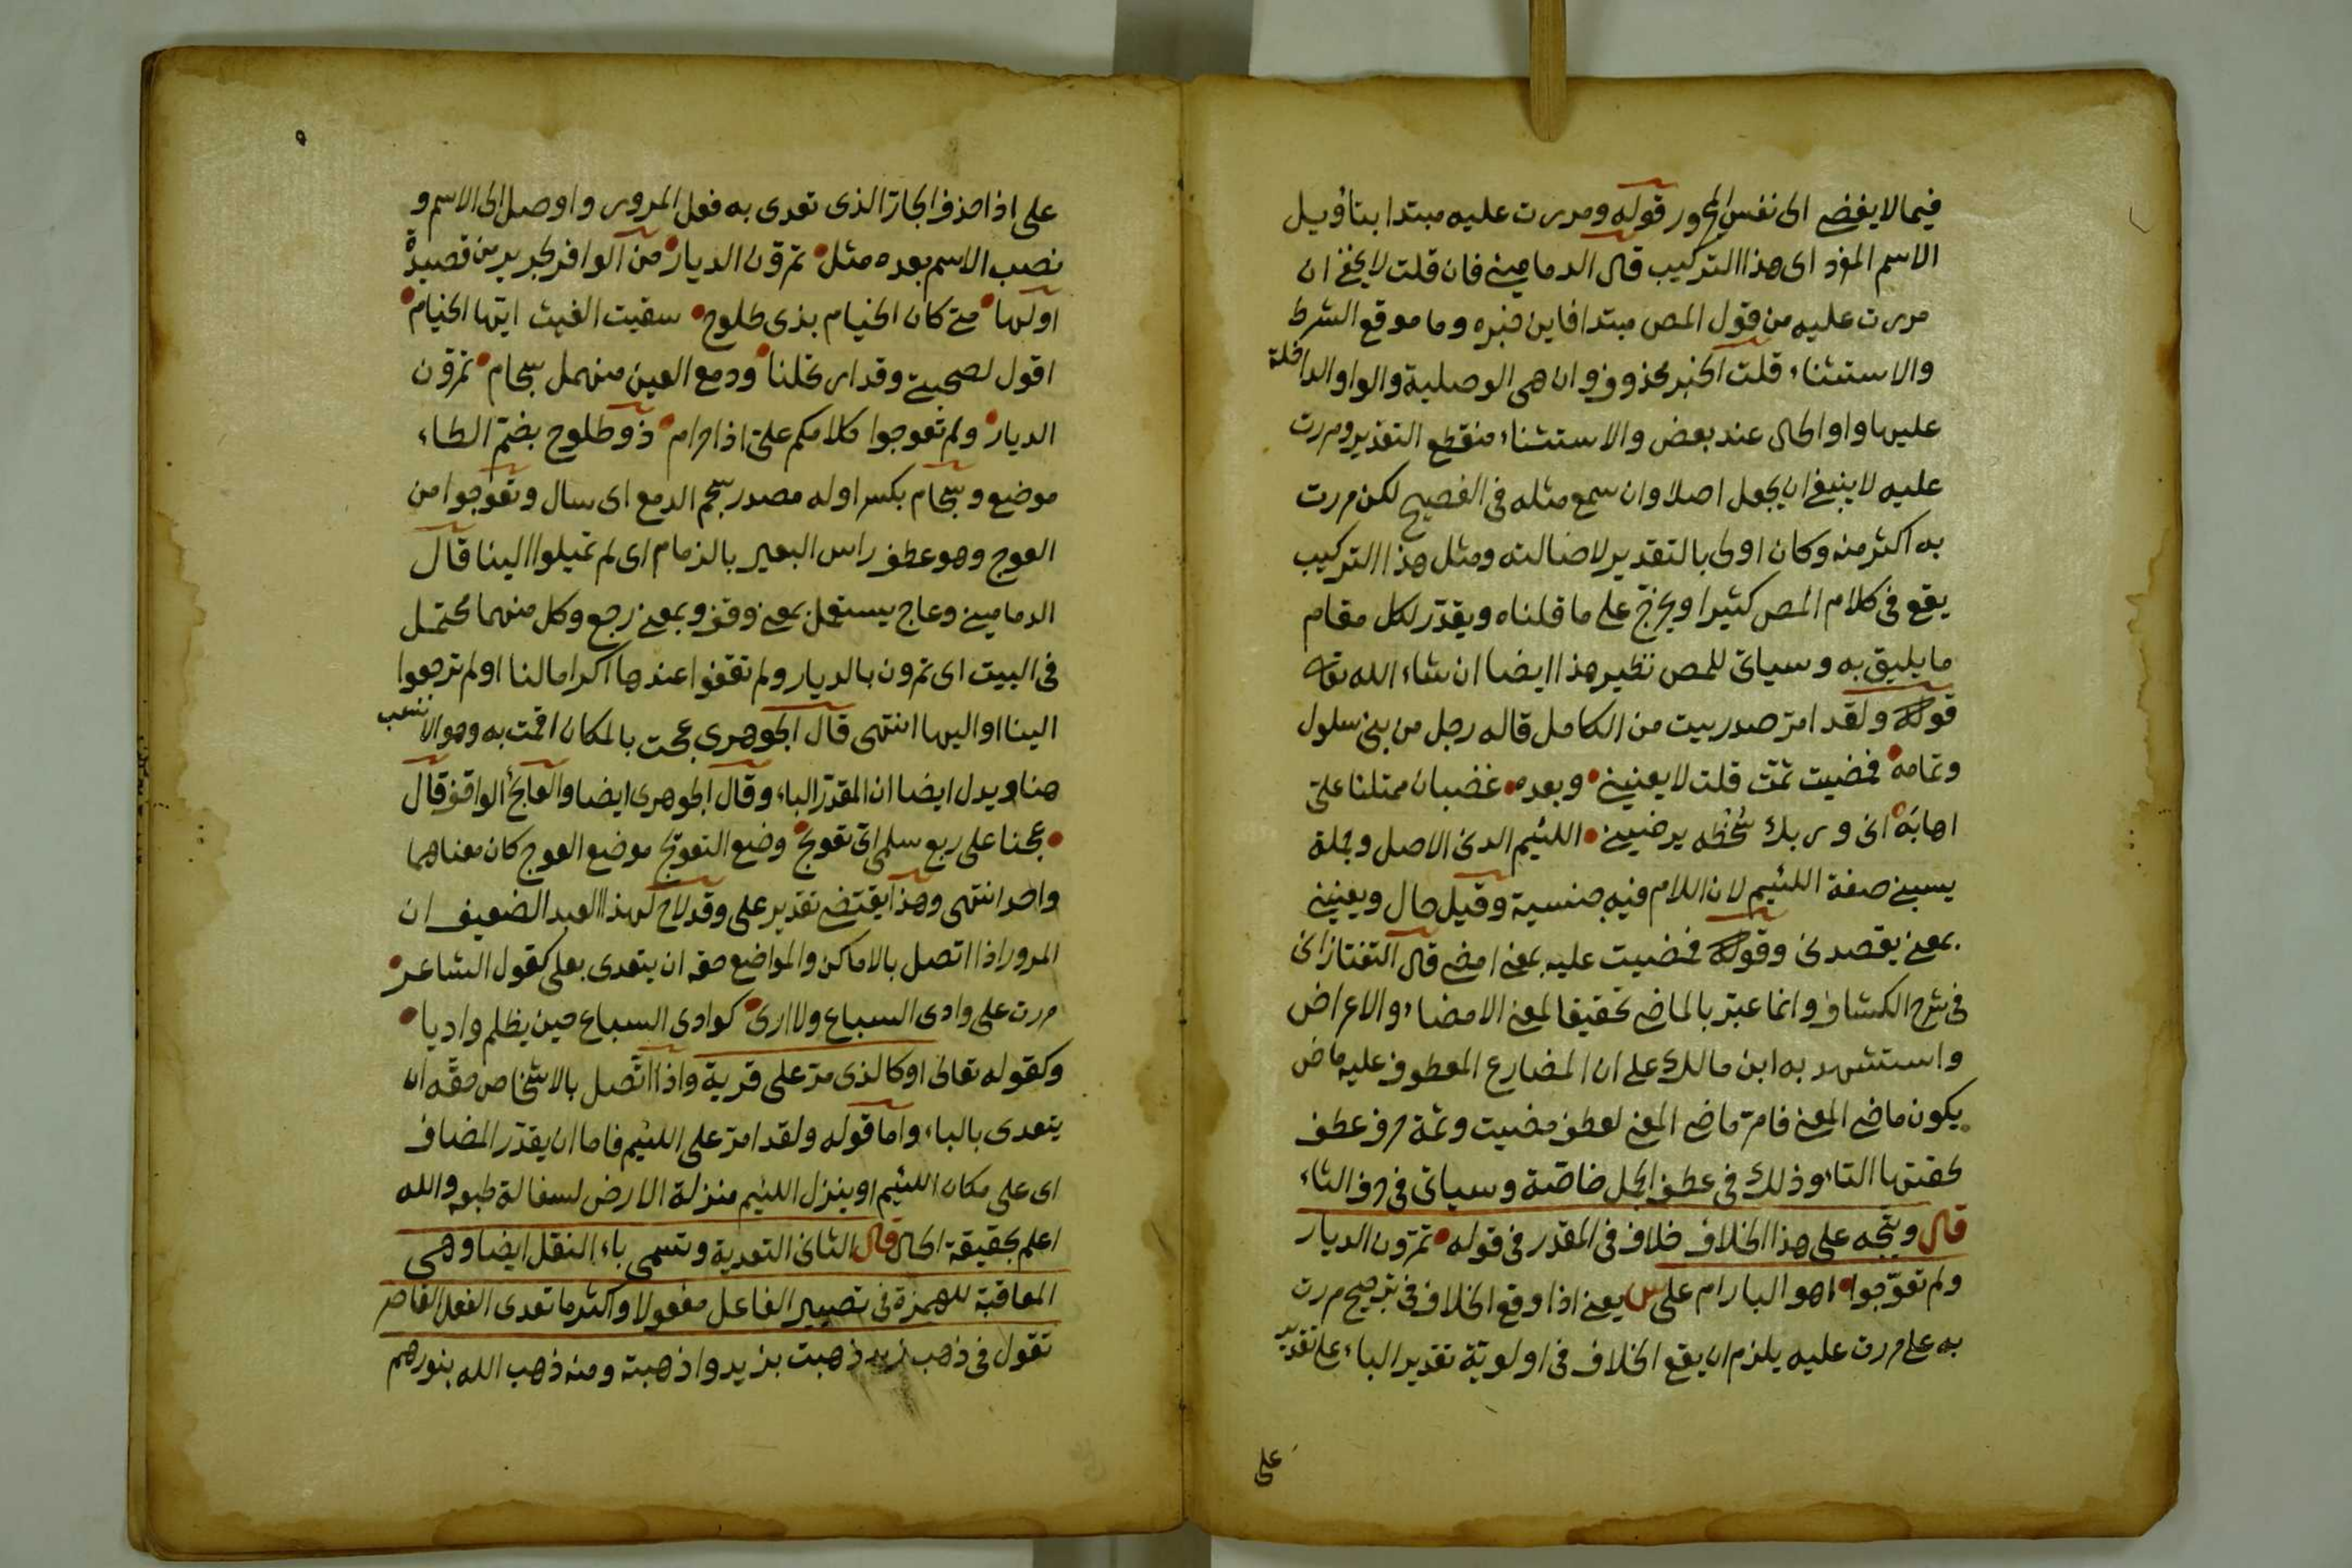 فيما لا يفضى الى نفس المجرور قوله ومررت عليه مبتدا بتأويل
الاسم المفرد اى هذا التركيب قال الدمامينى فان قلت لا يخفى ان
مررت عليه من قول المص مبتدا فاين خبره وما موقع الشرط
والاستثناء قلت الخبر محذوف وان هى الوصلية والواو الداخلة
عليها واو الحال عند بعض والاستثناء منقطع التقدير ومررت
عليه لا ينبغى ان يجعل اصلا وان سمع مثله فى الفصيح لكن مررت
به اكثر منه وكان اولى بالتقدير لاضالته ومثل هذا التركيب
يقع فى كلام المص كثيرا ويخرّج على ما قلناه ويقدّر لكل مقام
ما يليق به وسياتى للمص نظير هذا ايضا ان شاء الله تعالى
قوله ولقد امرّ صدر بيت من الكامل قاله رجل من بنى سلول
وتمامه فمضيت ثمّت قلت لا يعنينى وبعده غضبان ممتلئا علىّ
اهابه انى وربك سُخْطُه يرضينى اللئيم الدنى الاصل وجملة
يسبنى صفة اللئيم لان اللام فيه جنسية وقيل حال ويعنينى
بمعنى يقصدنى وقوله فمضيت عليه بمعنى امضى قال التفتازانى
فى شرح الكشاف وانما عبّر بالماضى تحقيقا لمعنى الامضاء والاعراض
واستشهد به ابن مالك على ان المضارع المعطوف عليه ماض
يكون ماضى المعنى فامرّ ماضى المعنى لعطف مضيت وثمة حرف عطف
لحقتها التاء وذلك فى عطف الجمل خاصّة وسياتى فى حرف الثاء
قال ويتّجه على هذا الخلاف خلاف فى المقدر فى قوله تمرّون الديار
ولم تعوّجوا اهو الباء ام على س يعنى اذا وقع الخلاف فى ترجيح مررت
به على مررت عليه يلزم ان يقع الخلاف فى اولوية تقدير الباء على تقدير
على
٩
على اذا حذف الجارّ الذى تعدى به فعل المرور واوصل الى الاسم و
نصب الاسم بعده مثل تمرّون الديار من الوافر لجرير من قصيدة
اولها متى كان الخيام بذى طلوح سقيت الغيث ايتها الخيام
اقول لصحبتى وقد ارتحلنا ودمع العين منهمل سجام تمرّون
الديار ولم تعوجوا كلامكم علىّ اذا حرام ذو طلوح بضمّ الطاء
موضع وسجام بكسر اوله مصدر سجم الدمع اى سال وتعوجوا من
العوج وهو عطف راس البعير بالزمام اى لم تميلوا الينا قال
الدمامينى وعاج يستعمل بمعنى وقف وبمعنى رجع وكل منهما محتمل
فى البيت اى تمرون بالديار ولم تقفوا عندها اكراما لنا او لم ترجعوا
الينا او اليها انتهى قال الجوهرى عجت بالمكان اقمت به وهو الانسب
هنا ويدل ايضا ان المقدّر الباء وقال الجوهرى ايضا والعائج الواقف قال
عجنا على ربع سلمى اىّ تعويج وضع التعويج موضع العوج كان معناهما
واحد انتهى وهذا يقتضى تقدير على وقد لاح لهذا العبد الضعيف ان
المرور اذا اتصل بالاماكن والمواضع حقه ان يتعدى بعلى كقول الشاعر
مررت على وادى السباع ولا ارى كوادى السباع حين يظلم واديا
وكقوله تعالى او كالذى مرّ على قرية واذا اتّصل بالاشخاص حقّه ان
يتعدى بالباء واما قوله ولقد امرّ على اللئيم فاما ان يقدّر المضاف
اى على مكان اللئيم او ينزل اللئيم منزلة الارض لسفالة طبعه والله
اعلم بحقيقة الحال قال الثانى التعدية وتسمى باء النقل ايضا وهى
المعاقبة للهمزة فى تصيير الفاعل مفعولا واكثر ما تعدى الفعل القاصر
تقول فى ذهب زيد ذهبت بزيد واذهبته ومنه ذهب الله بنورهم